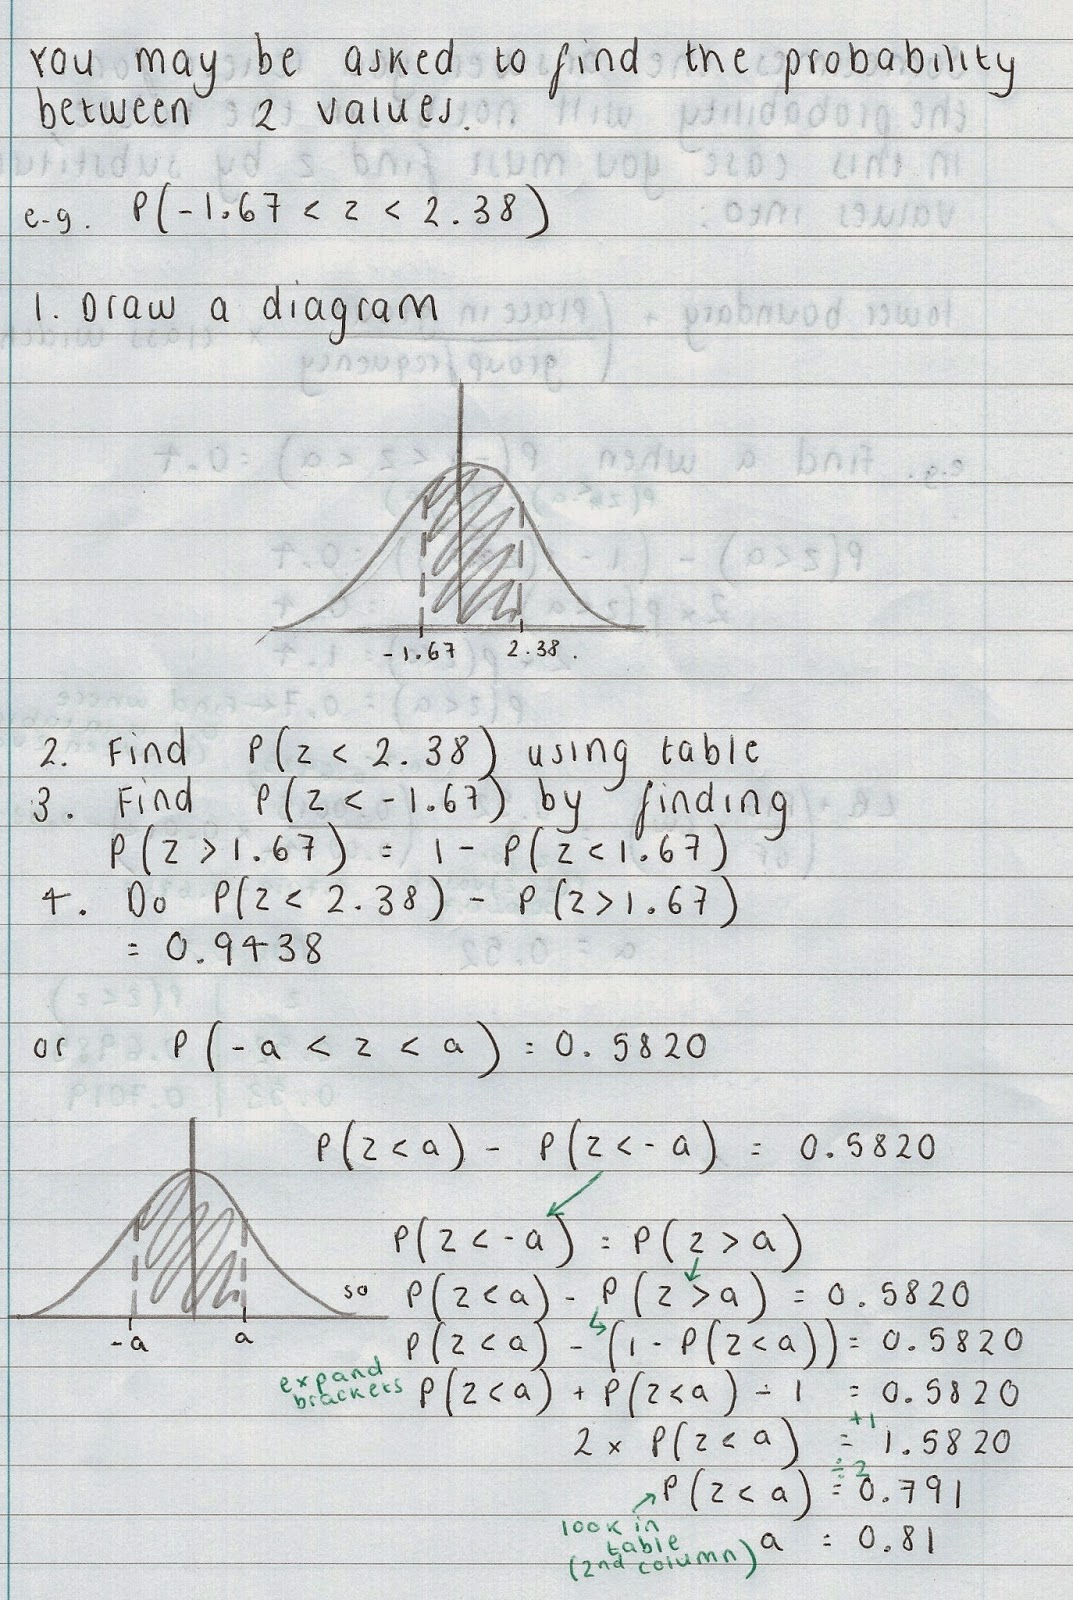 You may be asked to find the probability
between 2 values.
e.g. P(-1.67 < z < 2.38)
1. Draw a diagram
-1.67 2.38.
2. Find P(z < 2.38) using table
3. Find P(z < -1.67) by finding
P(z > 1.67) = 1 - P(z < 1.67)
4. Do P(z < 2.38) - P(z > 1.67)
= 0.9438
or P(-a < z < a) = 0.5820
P(z < a) - P(z < -a) = 0.5820
P(z < -a) = P(z > a)
so P(z < a) - P(z > a) = 0.5820
-a a
P(z < a) - (1 - P(z < a)) = 0.5820
expand
brackets
P(z < a) + P(z < a) - 1 = 0.5820
+1
2 x P(z < a) = 1.5820
÷2
P(z < a) = 0.791
look in
table
(2nd column)
a = 0.81